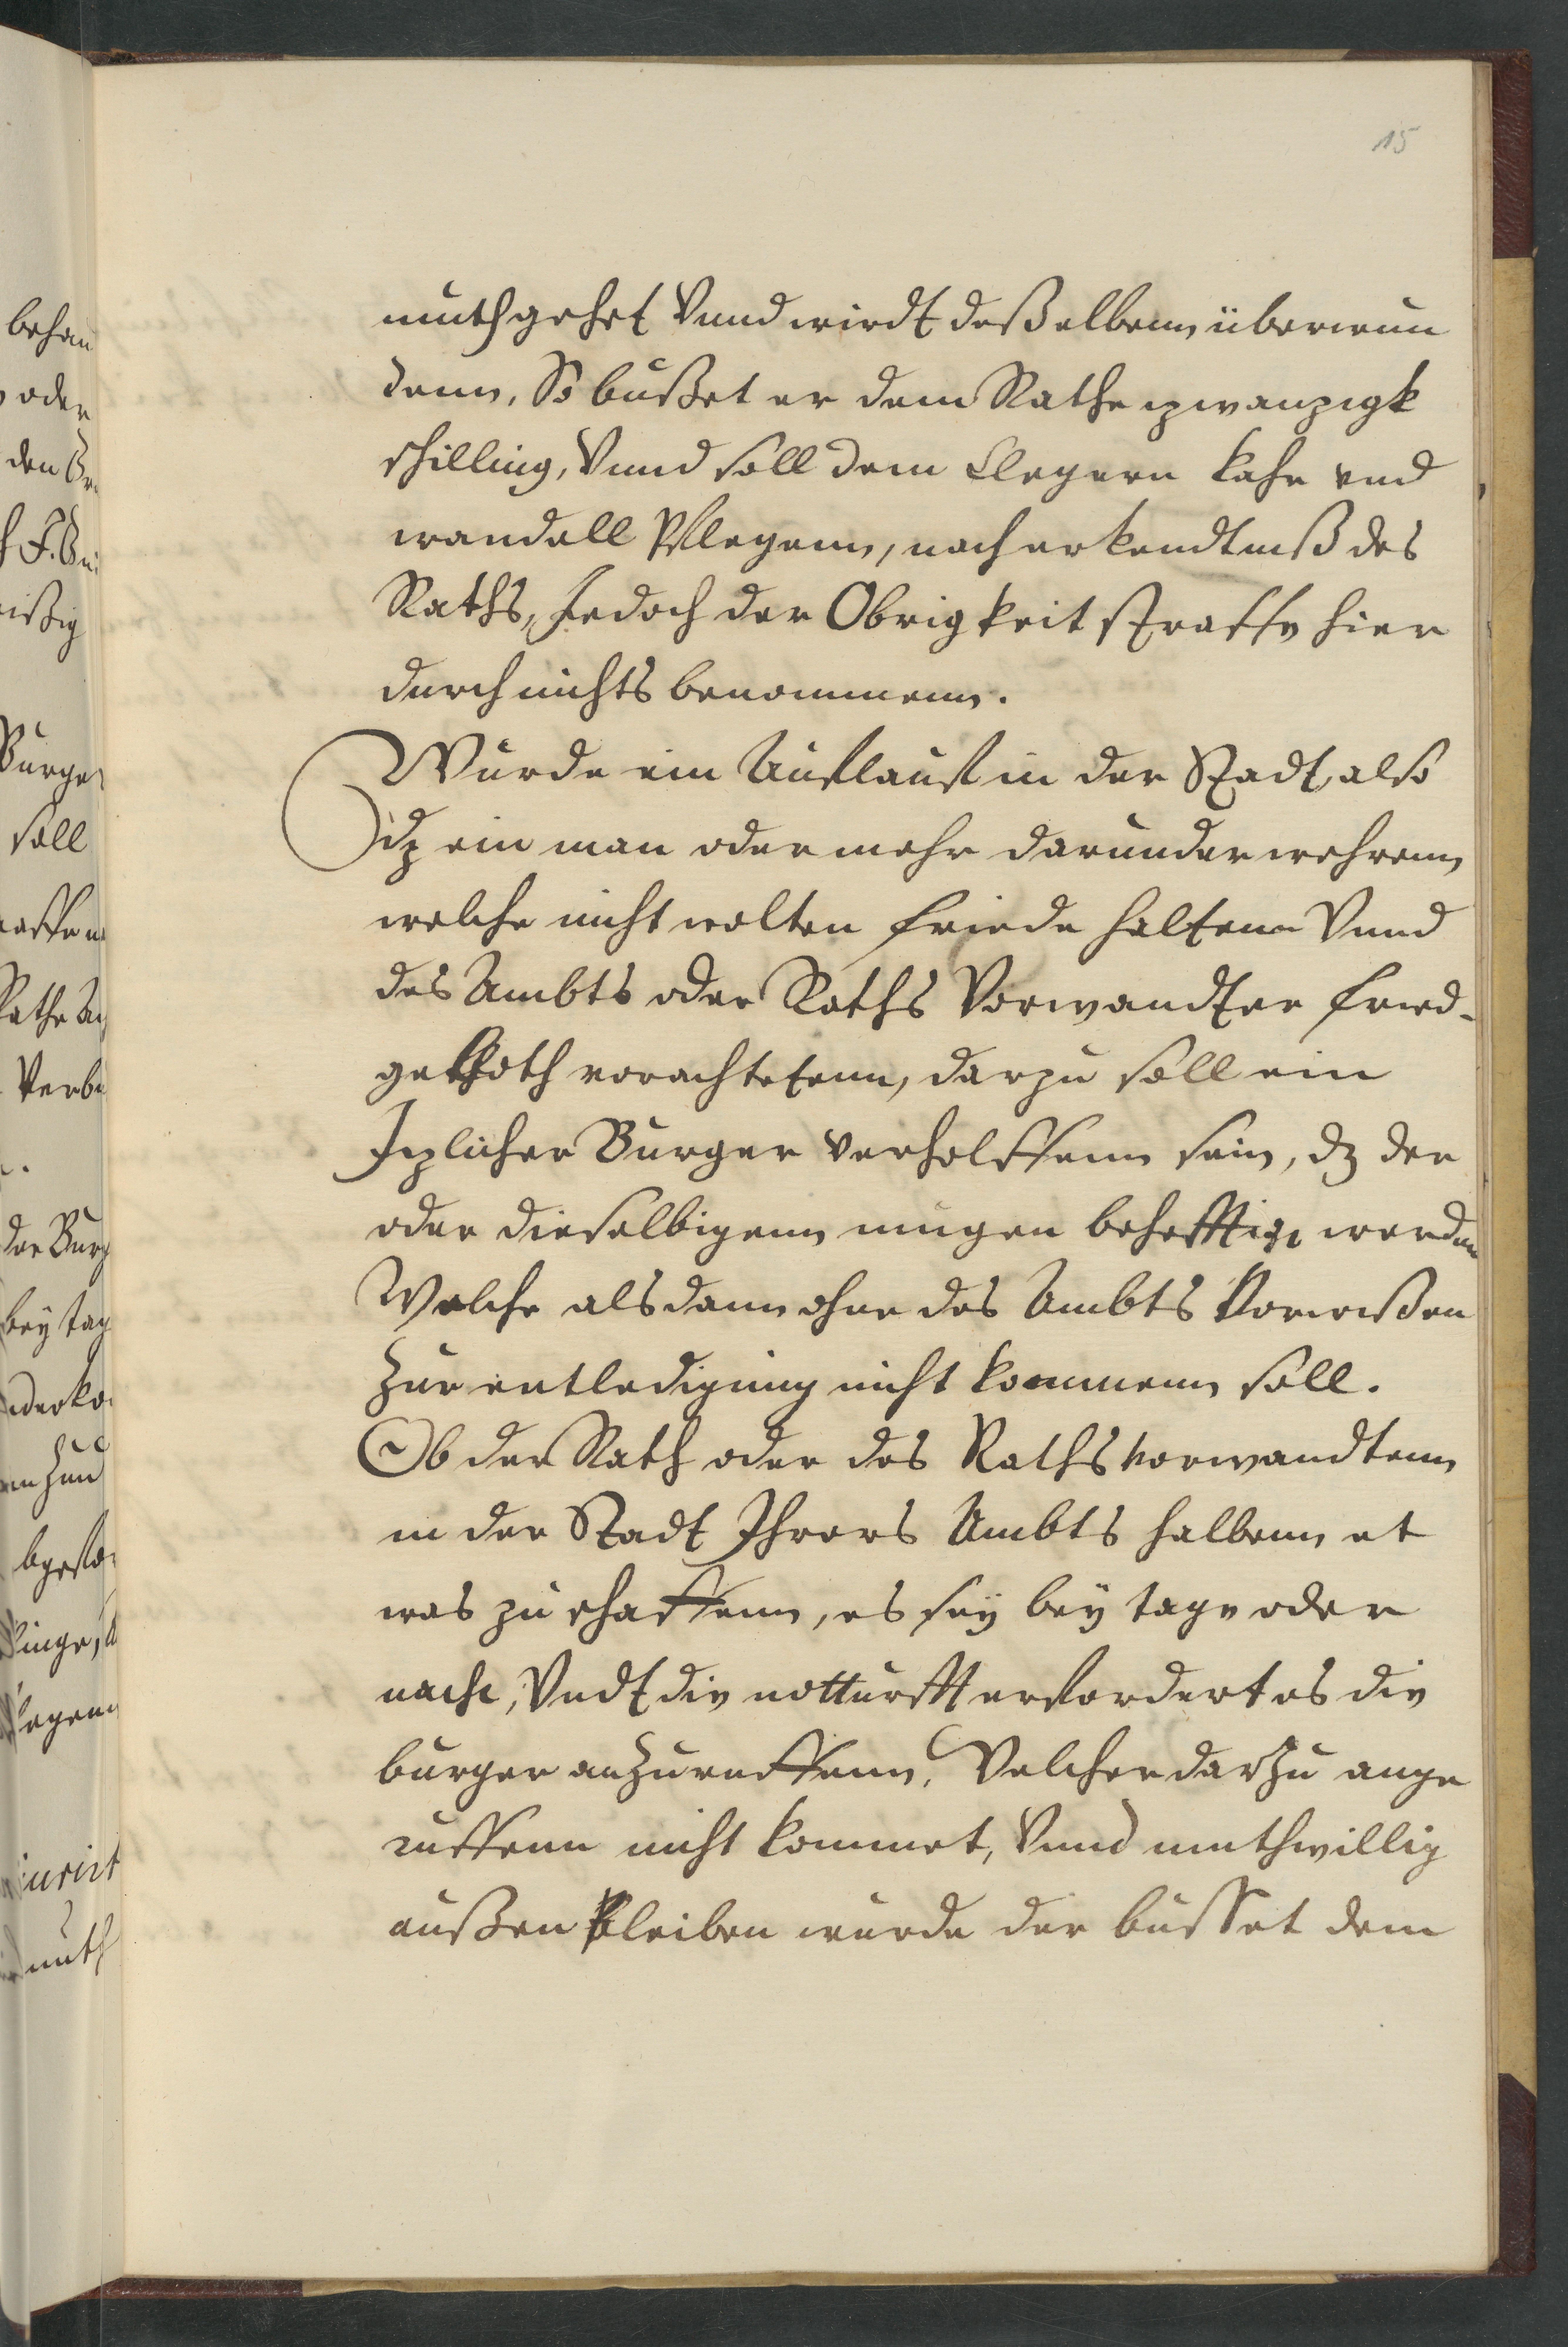 15
muth gehet Vnnd wirdt deßelbenn überwun
denn, So bußet er dem Rathe zwanzigk
schilling, Vnnd soll dem Clegern kahr vnd
wandell Pflegenn, nach erkendtniß des
Raths, Jedoch der Obrigkeit straffe hier
durch nichts benommenn.
Wurde ein Aufflauff in der Stadt, also
dz ein man oder mehr darunder wehrenn
welche nicht wolten friede haltenn Vnnd
des Ambts oder Raths Vorwandter fried-
geboth vorachtetenn, darzu soll ein
Izlicher Burger verholffenn sein, dz der
oder dieselbigenn mugen behefftigt werden
Welche alsdann ohne des Ambts Vorwißen
Zur entledigung nicht kommenn soll.
Ob der Rath oder des Raths vorwandtenn
in der Stadt Ihrers Ambts halbenn et
was zu schaffenn, es sey bey tage oder
nacht, Vndt die notturfft erfordert es die
burger anZuruffenn, Welcher darZu ange
ruffenn nicht kommet, Vnnd muthwillig
außen bleiben wurde der busset dem
behau
oder
soll
Verb
der Burg
bey tag
muth